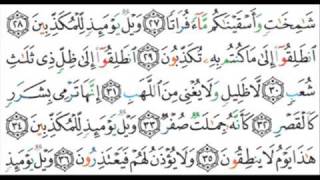 شَٰمِخَٰتٖ وَأَسۡقَيۡنَٰكُم مَّآءٗ فُرَاتٗا ٢٧ وَيۡلٞ يَوۡمَئِذٖ لِّلۡمُكَذِّبِينَ ٢٨
ٱنطَلِقُوٓاْ إِلَىٰ مَا كُنتُم بِهِۦ تُكَذِّبُونَ ٢٩ ٱنطَلِقُوٓاْ إِلَىٰ ظِلّٖ ذِي ثَلَٰثِ
شُعَبٖ ٣٠ لَّا ظَلِيلٖ وَلَا يُغۡنِي مِنَ ٱللَّهَبِ ٣١ إِنَّهَا تَرۡمِي بِشَرَرٖ
كَٱلۡقَصۡرِ ٣٢ كَأَنَّهُۥ جِمَٰلَتٞ صُفۡرٞ ٣٣ وَيۡلٞ يَوۡمَئِذٖ لِّلۡمُكَذِّبِينَ ٣٤
هَٰذَا يَوۡمُ لَا يَنطِقُونَ ٣٥ وَلَا يُؤۡذَنُ لَهُمۡ فَيَعۡتَذِرُونَ ٣٦ وَيۡلٞ يَوۡمَئِذٖ